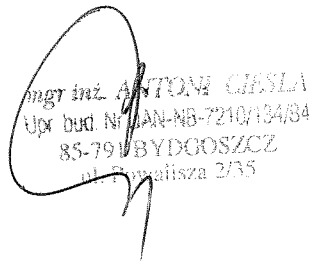 mgr inż. ANTONI CIEŚLA
Upr. bud. Nr UAN-NB-7210/134/84
85-791 BYDGOSZCZ
ul. 2/35